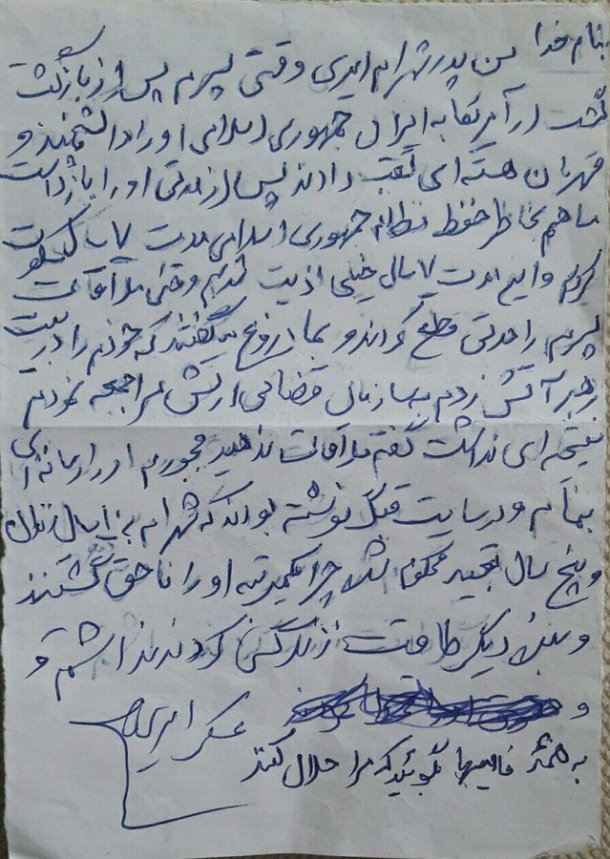 بنام خدا من پدر شهرام امیری وقتی پسرم پس از بازگشت
گشت از آمریکا به ایران جمهوری اسلامی او را دانشمند و
قهرمان هسته ای لقب دادند پس از مدتی او را بازداشت
ما هم بخاطر حفظ نظام جمهوری اسلامی مدت ۷ سال سکوت
کردیم و این مدت ۷ سال خیلی اذیت شدیم وقتی ملاقات
پسرم را مدتی قطع کردند و بما دروغ میگفتند که خودم را در بیت
رهبر آتش زدم به سازمان قضائی ارتش مراجعه نمودم
نتیجه ای نداشت گفتم ملاقات ندهید مجبورم او را رسانه ای
بنمایم و در سایت قبلا نوشته بودند که شهرام به ۱۰ سال زندان
و پنج سال تبعید محکوم شد چرا یکمرتبه او را ناحق کشتند
و من دیگر طاقت زندگی کردن ندارم و
و
به همه فامیلها بگوئید که مرا حلال کنند
عسگر امیری